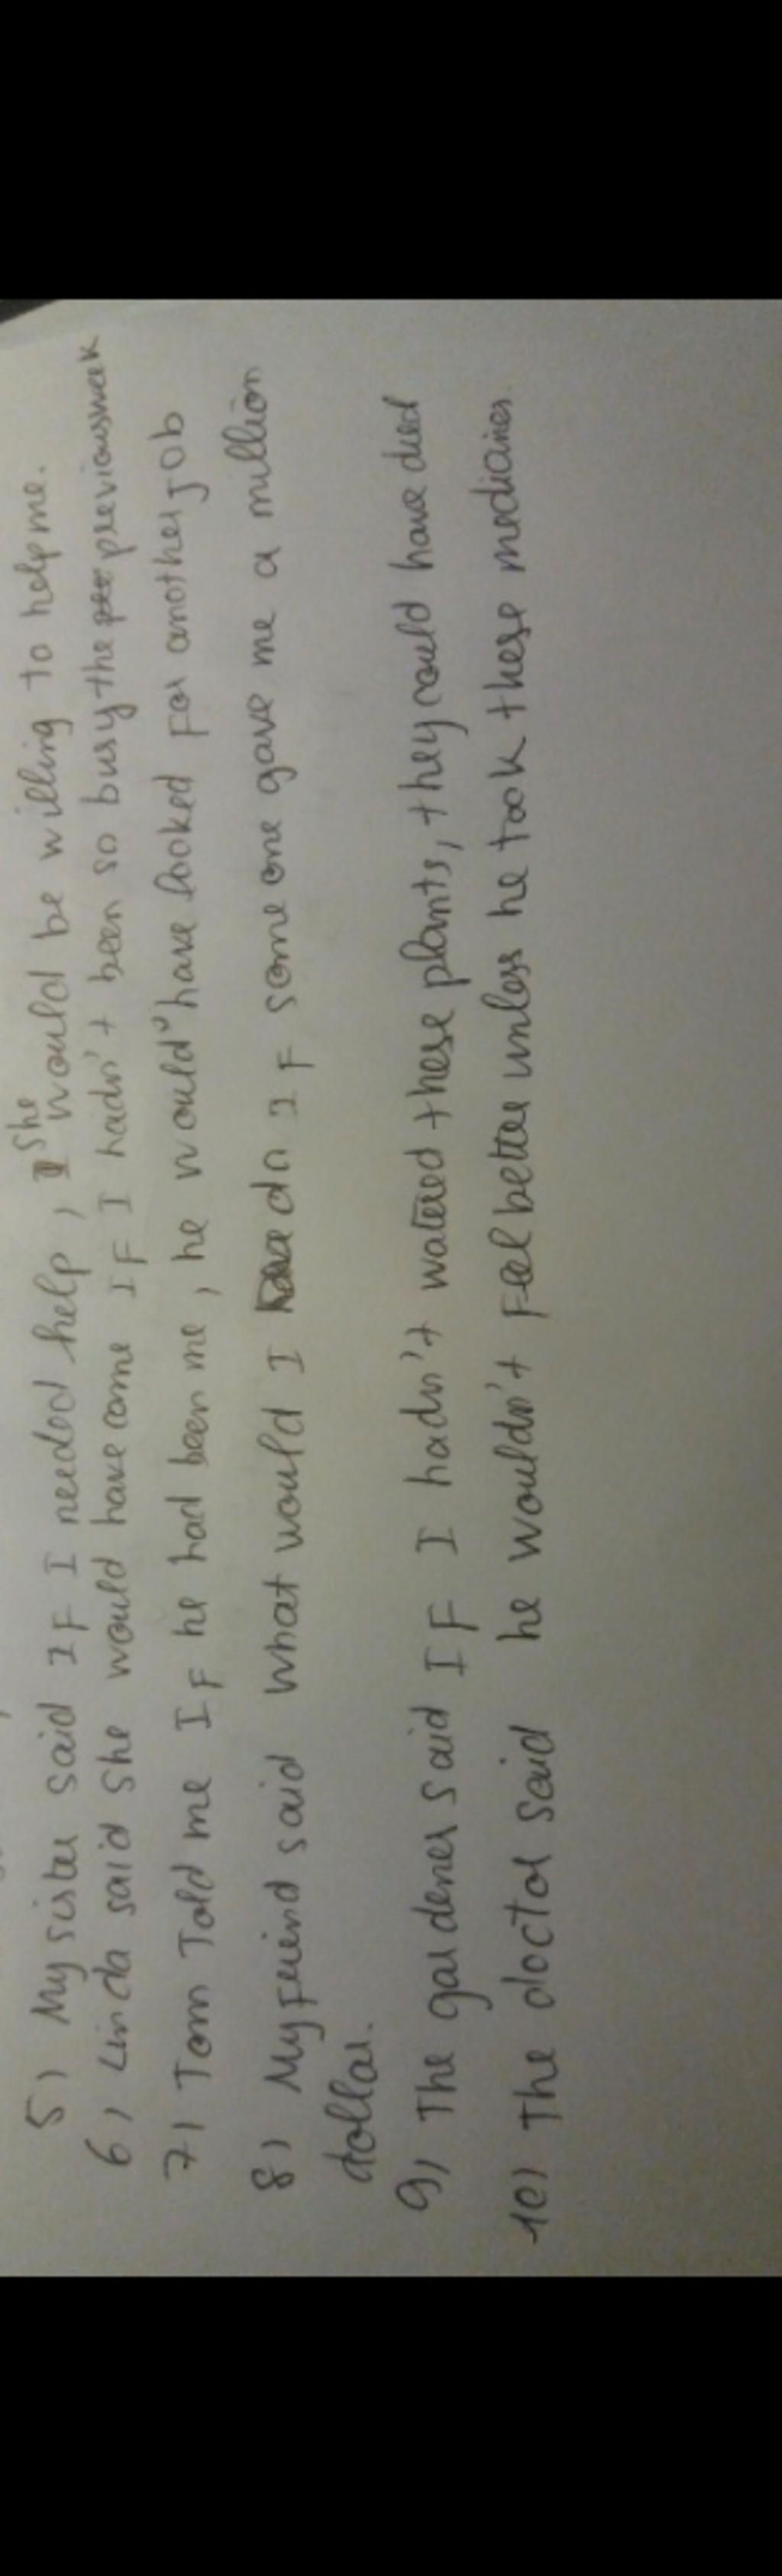 5) My sister said IF I needed help, she would be willing to help me.
6) Linda said she would have come IF I hadn't been so busy the previous week
7) Tom Told me IF he had been me, he would have looked For another job
8) My Friend said what would I do IF some one gave me a million
dollar.
9) The gardener said IF I hadn't watered these plants, they could have died
10) The doctor said he wouldn't Feel better unless he took these medicines.